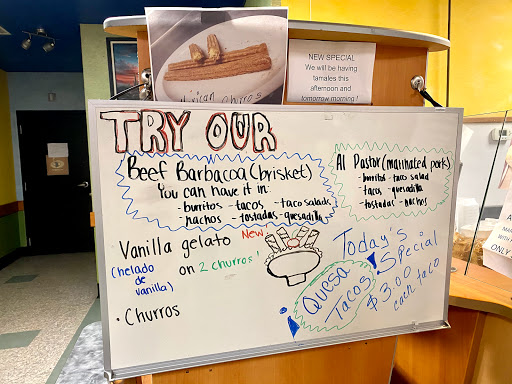 Mexican churros
NEW SPECIAL
We will be having
tamales this
afternoon and
tomorrow morning!
TRY OUR
Beef Barbacoa (brisket)
You can have it in:
- burritos - tacos - taco salads
nachos - tostadas - quesadilla
Al Pastor (marinated pork)
- burritos - taco salad
- tacos - quesadilla
- tostadas - nachos
Vanilla gelato New
(helado
de
vanilla)
on 2 churros!
• Churros
Today's
Special
Quesa
Tacos
$3.00
each taco
ONLY